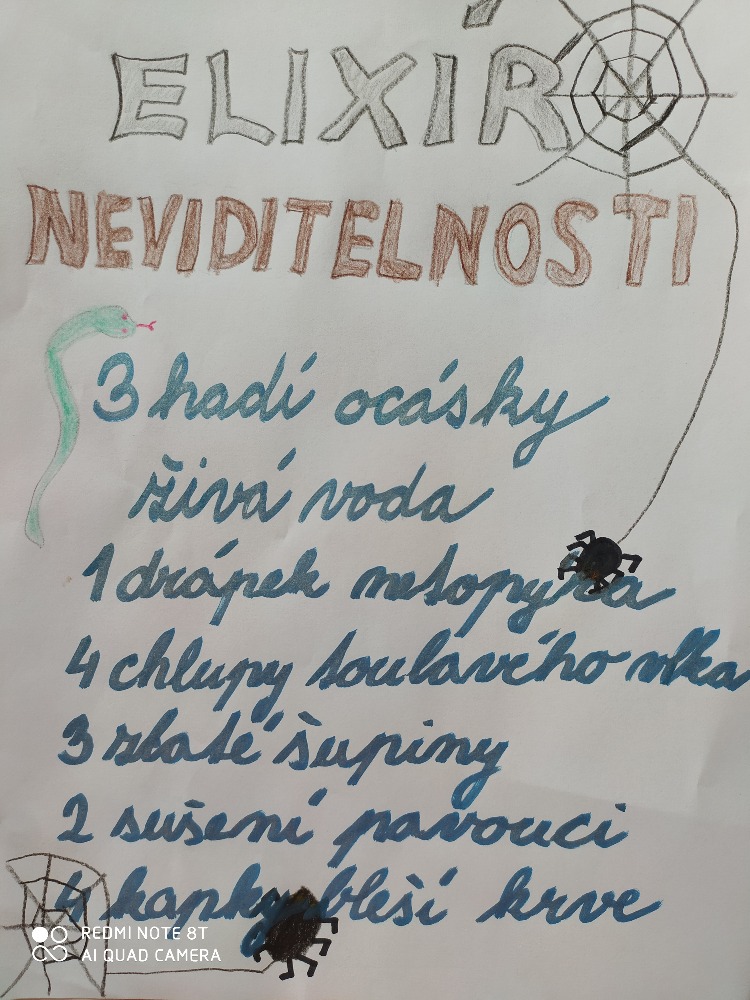 ELIXÍR
NEVIDITELNOSTI
3 hadí ocásky
živá voda
1 drápek netopýra
4 chlupy toulavého vlka
3 zlaté šupiny
2 sušení pavouci
4 kapky bleší krve
REDMI NOTE 8T
AI QUAD CAMERA